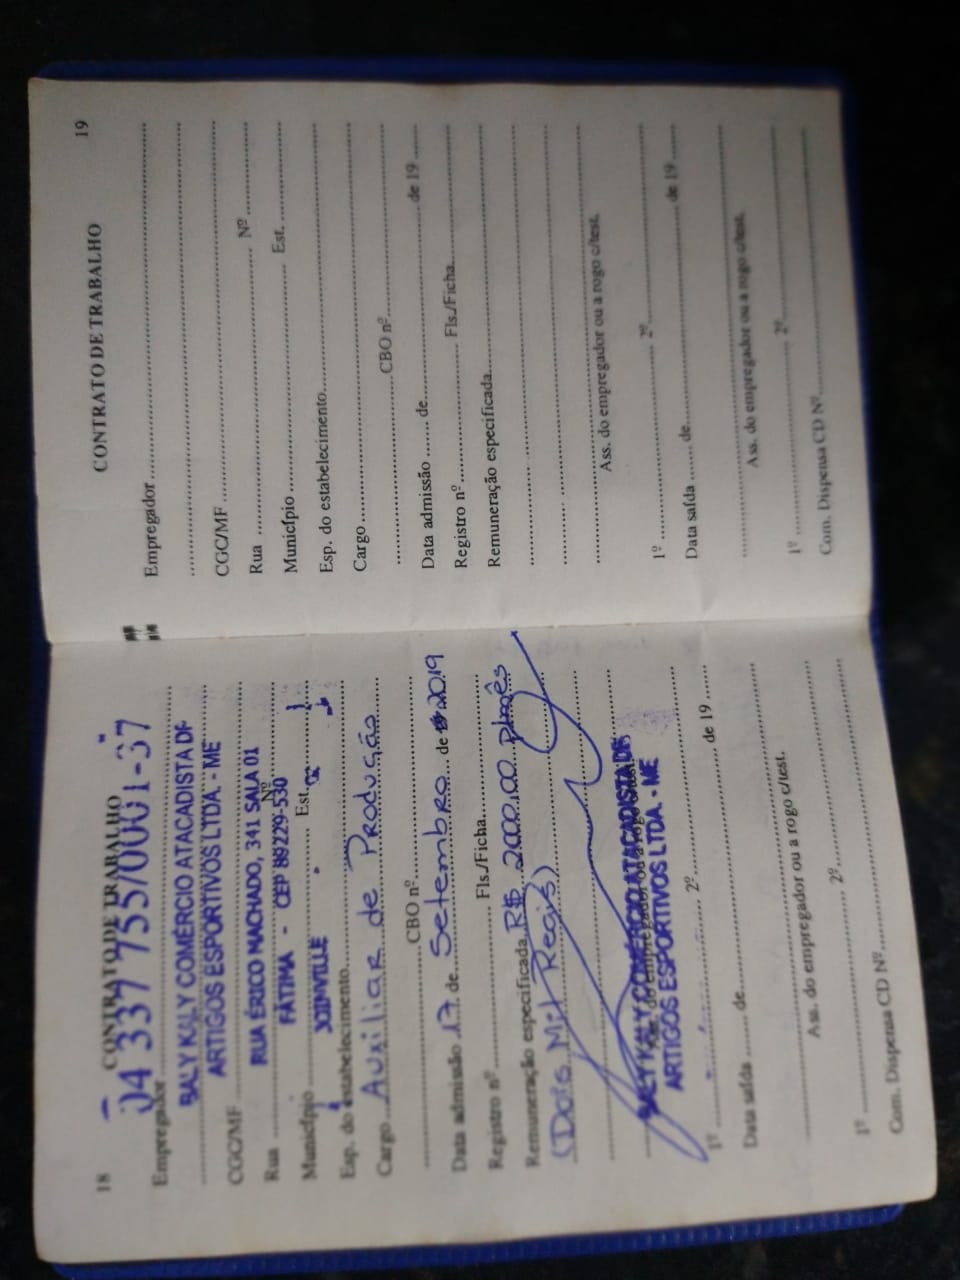 18
CONTRATO DE TRABALHO
04 337 755/0001-37
Empregador
BALY KALY COMÉRCIO ATACADISTA DE
ARTIGOS ESPORTIVOS LTDA. - ME
CGC/MF
RUA ÉRICO MACHADO, 341 SALA 01
Rua Nº
FÁTIMA - CEP 89229-530
Município Est.
JOINVILLE
Esp. do estabelecimento
Cargo Auxiliar de Produção
CBO nº
Data admissão 17 de Setembro de 2019
Registro nº Fls./Ficha
Remuneração especificada R$ 2000.00 p/mês
(Dois Mil Reais)
Ass. do empregador ou a rogo c/test.
BALY KALY COMÉRCIO ATACADISTA DE
ARTIGOS ESPORTIVOS LTDA. - ME
1º 2º
Data saída de de 19
Ass. do empregador ou a rogo c/test.
1º 2º
Com. Dispensa CD Nº
19
CONTRATO DE TRABALHO
Empregador
CGC/MF
Rua Nº
Município Est.
Esp. do estabelecimento
Cargo
CBO nº
Data admissão de de 19
Registro nº Fls./Ficha
Remuneração especificada
Ass. do empregador ou a rogo c/test.
1º 2º
Data saída de de 19
Ass. do empregador ou a rogo c/test.
1º 2º
Com. Dispensa CD Nº